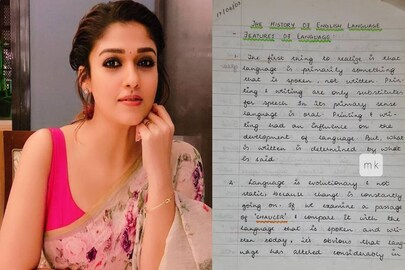 THE HISTORY OF ENGLISH LANGUAGE
FEATURES OF LANGUAGE
1. The first thing to realize is that
language is primarily something
that is spoken, not written. Prin-
ting & writing are only substitutes
for speech. In its primary sense
language is oral. Printing & wri-
ting had an influence on the
development of language. But, what
is written is determined by what
is said.
mk
2. Language is evolutionary & not
static. Because change is constantly
going on. If we examine a passage
of "CHAUCER" & compare it with the
language that is spoken and wri-
tten today, it's obvious that lang-
uage has altered considerably in